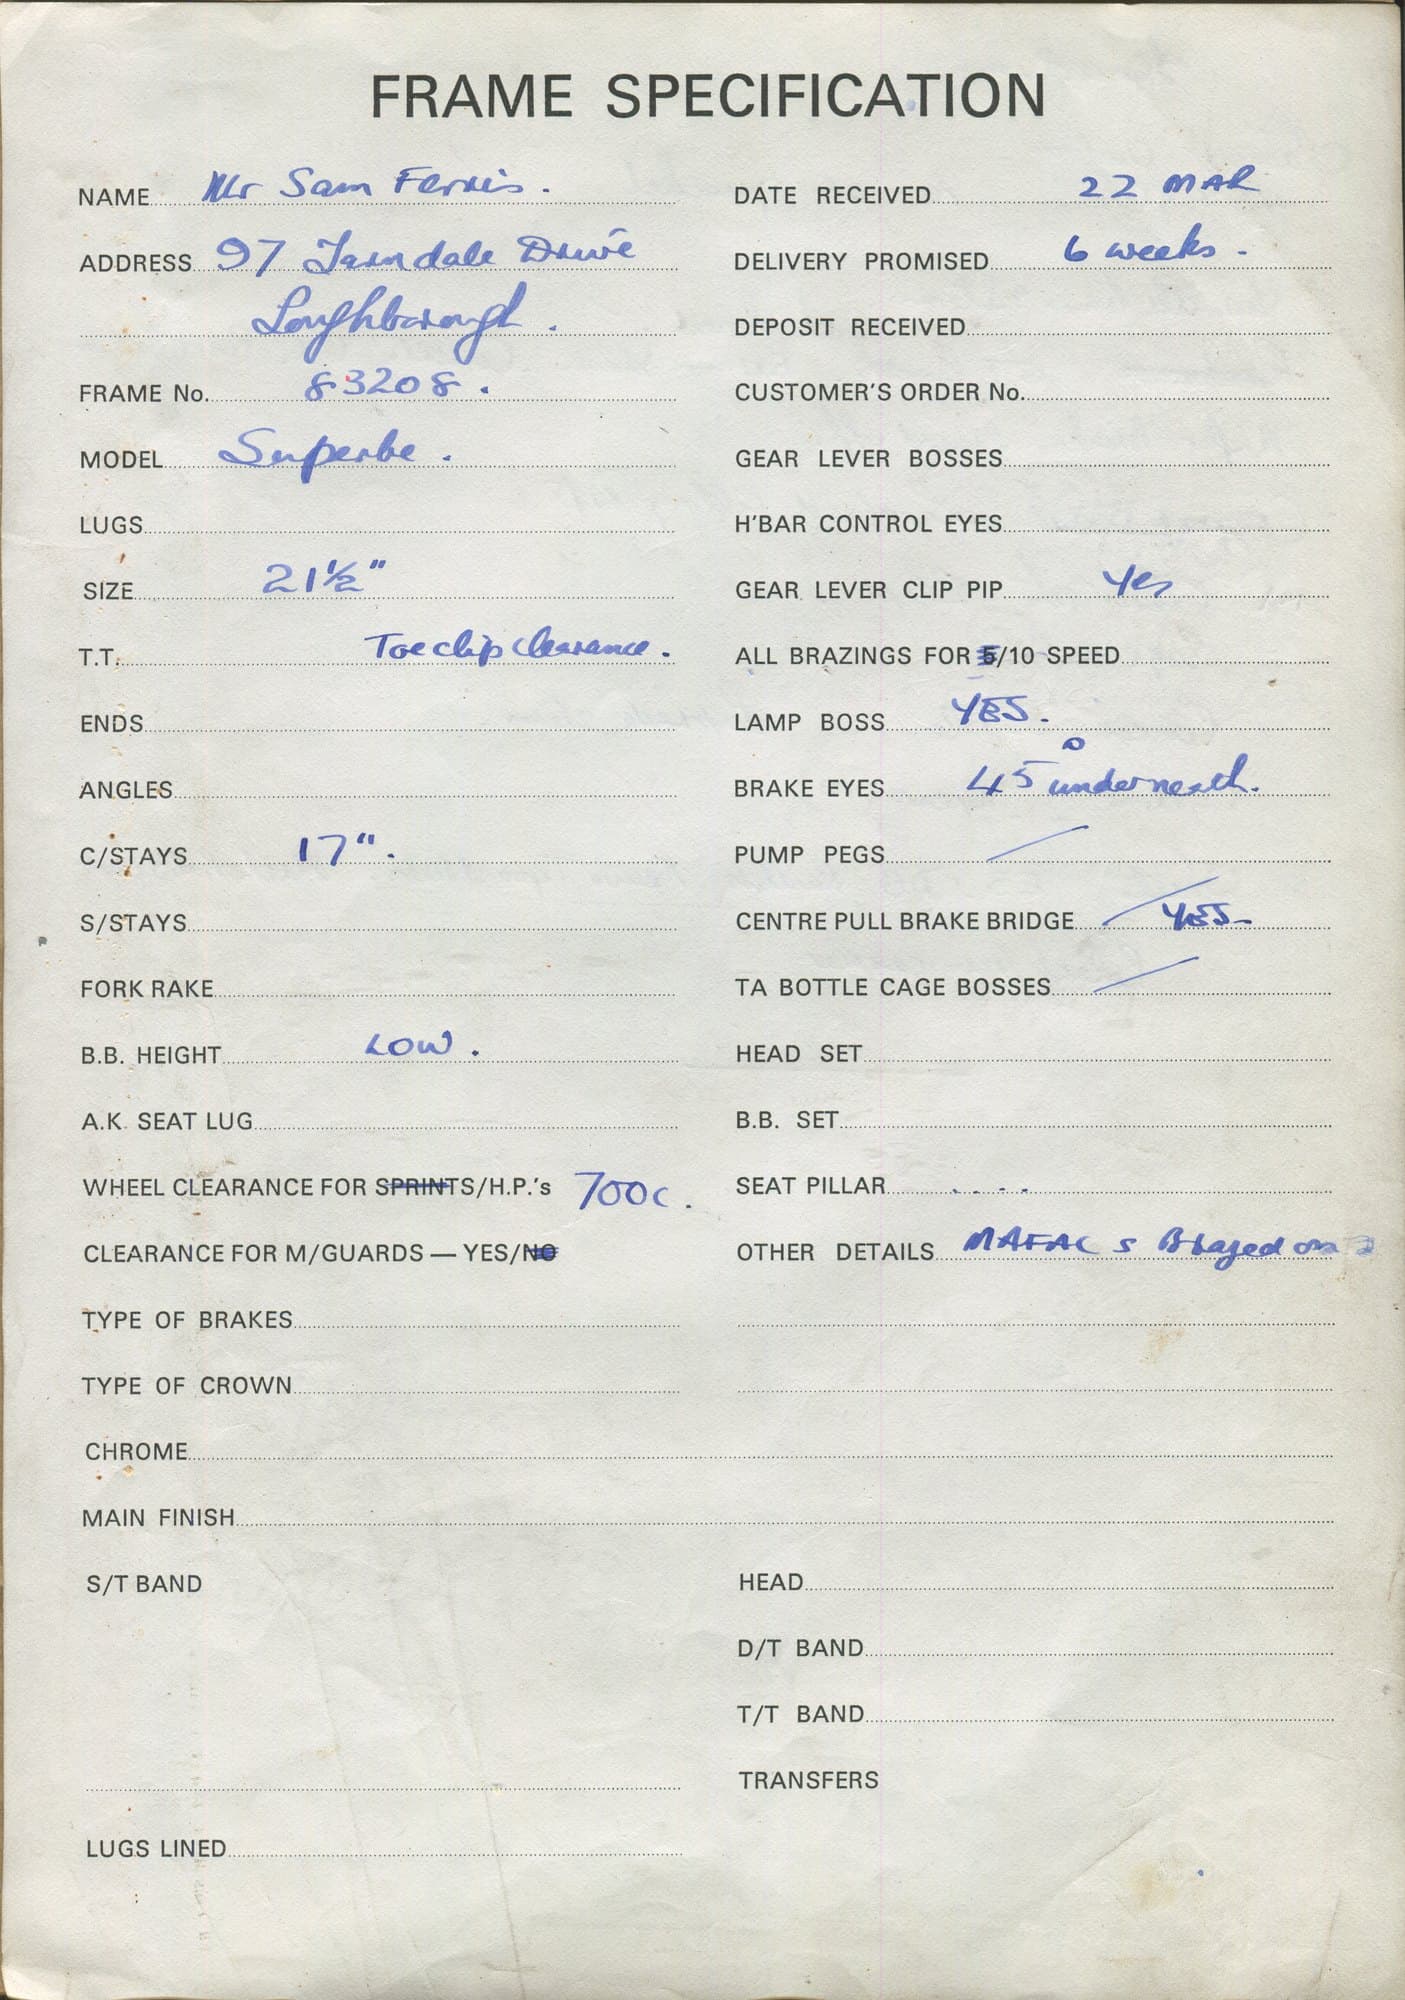 FRAME SPECIFICATION
NAME Mr Sam Ferris.
ADDRESS 97 Tarndale Drive
Loughborough.
FRAME No. 83208.
MODEL Superbe.
LUGS
SIZE 21½"
T.T. Toeclip clearance.
ENDS
ANGLES
C/STAYS 17".
S/STAYS
FORK RAKE
B.B. HEIGHT LOW.
A.K. SEAT LUG
WHEEL CLEARANCE FOR SPRINTS/H.P.'s 700c.
CLEARANCE FOR M/GUARDS — YES/NO
TYPE OF BRAKES
TYPE OF CROWN
CHROME
MAIN FINISH
S/T BAND
LUGS LINED
DATE RECEIVED 22 MAR
DELIVERY PROMISED 6 weeks.
DEPOSIT RECEIVED
CUSTOMER'S ORDER No.
GEAR LEVER BOSSES
H'BAR CONTROL EYES
GEAR LEVER CLIP PIP Yes
ALL BRAZINGS FOR 5/10 SPEED
LAMP BOSS YES.
BRAKE EYES 45° underneath.
PUMP PEGS /
CENTRE PULL BRAKE BRIDGE / YES
TA BOTTLE CAGE BOSSES /
HEAD SET
B.B. SET
SEAT PILLAR
OTHER DETAILS MAFAC s Brazed on
HEAD
D/T BAND
T/T BAND
TRANSFERS